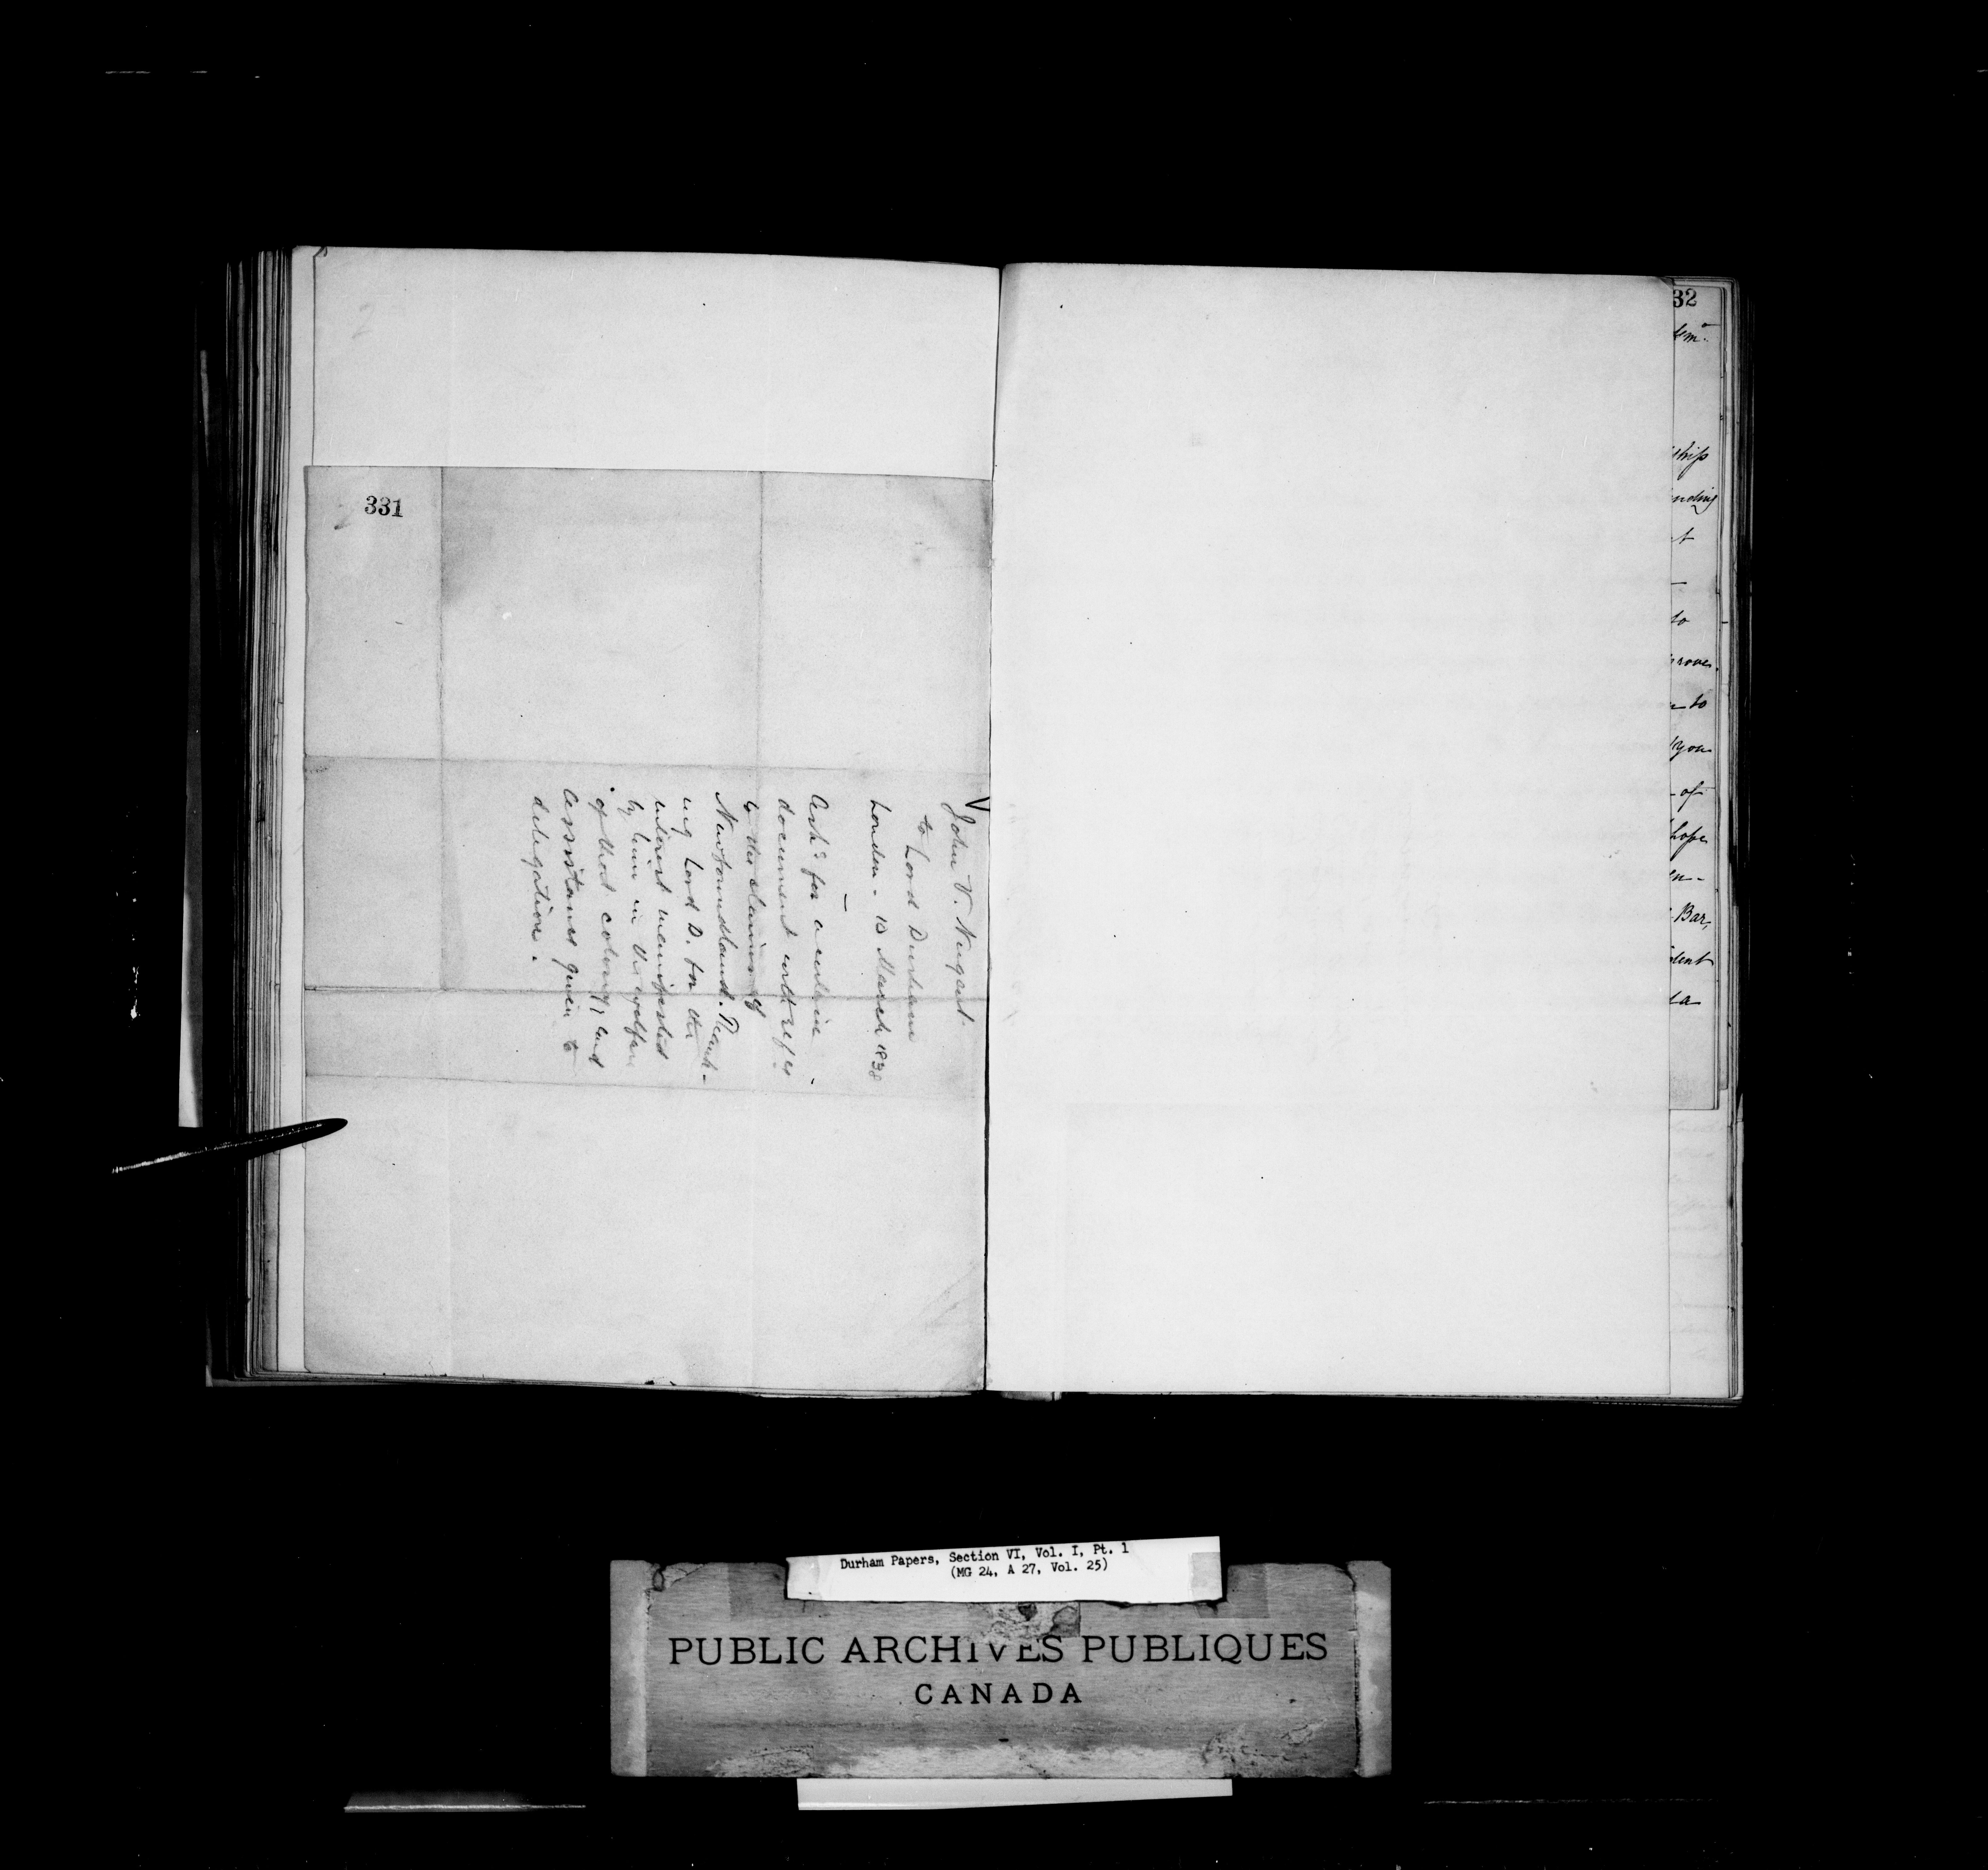 331
John V. Nugent.
to Lord Durham
London - 10 March 1838
Asks for a certain
document with ref ce
to the claims of
Newfoundland. Thank-
ing Lord D. for the
interest manifested
by him in the welfare
of that colony, and
assistance given to
delegation.
32
ship
nding
t
to
proves
n to
you
of
hope
en-
Bar,
dent
la
Durham Papers, Section VI, Vol. I, Pt. 1
(MG 24, A 27, Vol. 25)
PUBLIC ARCHIVES PUBLIQUES
CANADA